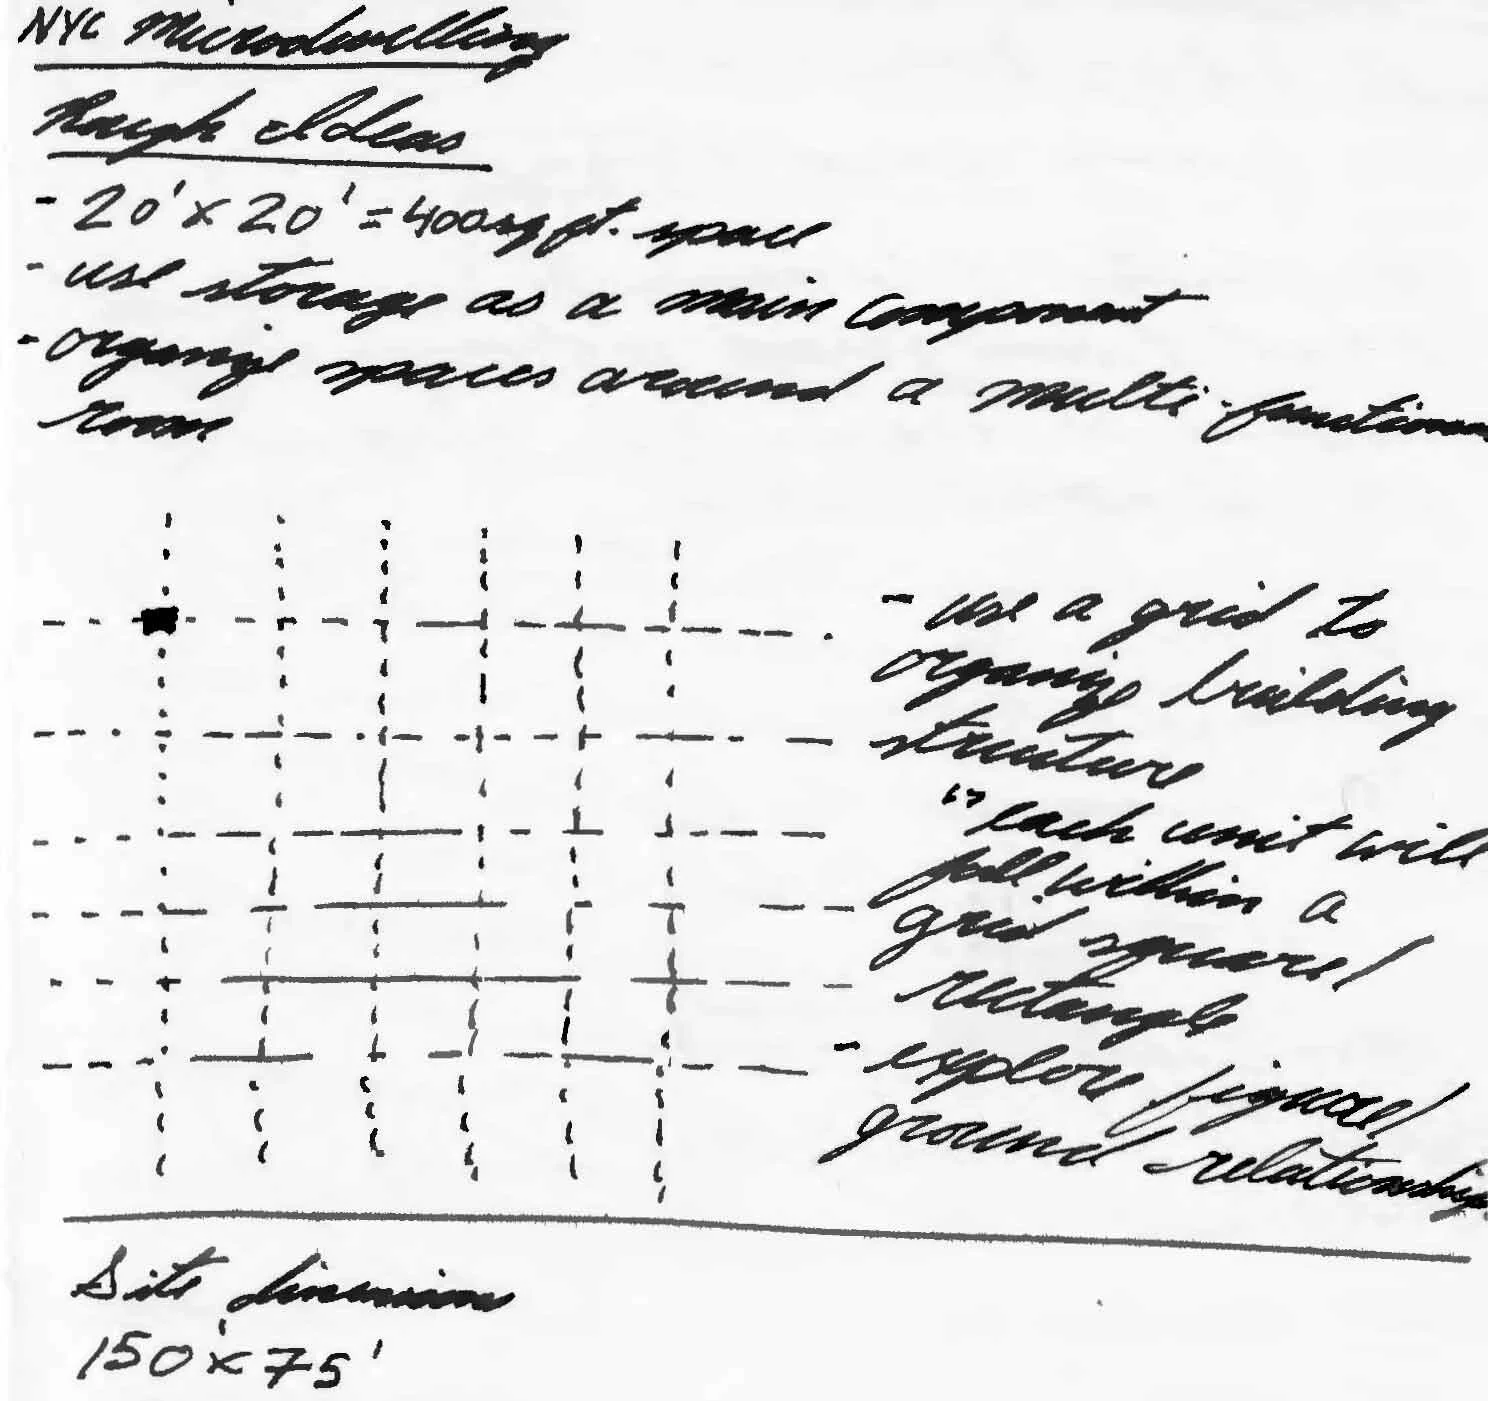 NYC Microdwelling
Rough Ideas
- 20' x 20' = 400 sq ft. space
- use storage as a main component
- organize spaces around a multi-function
room
- use a grid to
organize building
structure
"" each unit will
fall within a
grid square/
rectangle
- explore figure/
ground relationship
Site dimensions
150' x 75'